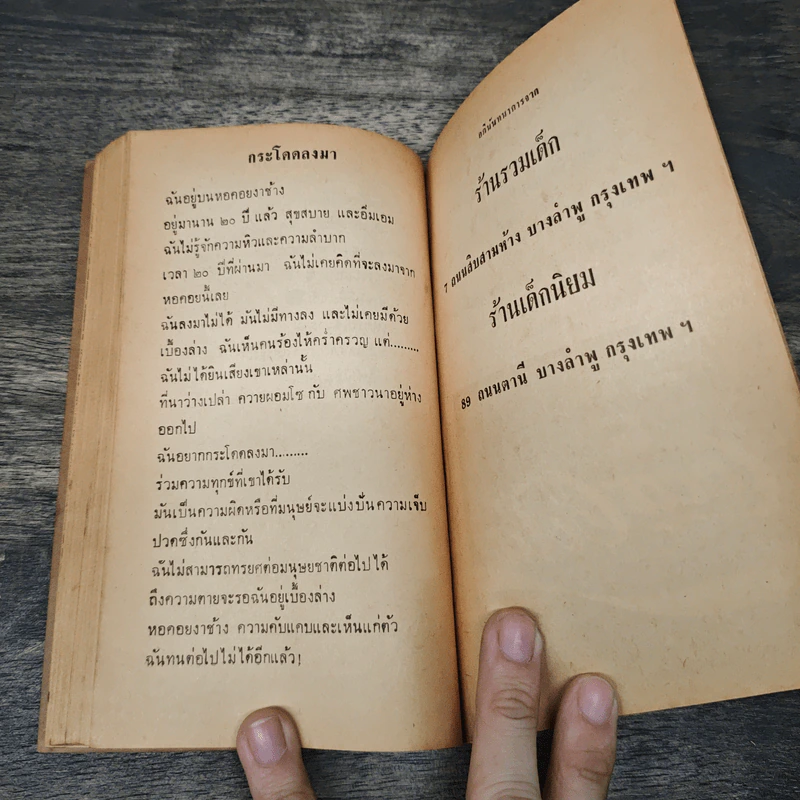 กระโดดลงมา
ฉันอยู่บนหอคอยงาช้าง
อยู่มานาน ๒๐ ปี แล้ว สุขสบาย และอิ่มเอม
ฉันไม่รู้จักความหิวและความลำบาก
เวลา ๒๐ ปีที่ผ่านมา ฉันไม่เคยคิดที่จะลงมาจาก
หอคอยนี้เลย
ฉันลงมาไม่ได้ มันไม่มีทางลง และไม่เคยมีด้วย
เบื้องล่าง ฉันเห็นคนร้องไห้คร่ำครวญ แต่.........
ฉันไม่ได้ยินเสียงเขาเหล่านั้น
ที่นาว่างเปล่า ควายผอมโซ กับ ศพชาวนาอยู่ห่าง
ออกไป
ฉันอยากกระโดดลงมา.........
ร่วมความทุกข์ที่เขาได้รับ
มันเป็นความผิดหรือที่มนุษย์จะแบ่งปันความเจ็บ
ปวดซึ่งกันและกัน
ฉันไม่สามารถทรยศต่อมนุษยชาติต่อไปได้
ถึงความตายจะรอฉันอยู่เบื้องล่าง
หอคอยงาช้าง ความคับแคบและเห็นแก่ตัว
ฉันทนต่อไปไม่ได้อีกแล้ว!
อภินันทนาการจาก
ร้านรวมเด็ก
7 ถนนสิบสามห้าง บางลำพู กรุงเทพ ฯ
ร้านเด็กนิยม
89 ถนนตานี บางลำพู กรุงเทพ ฯ